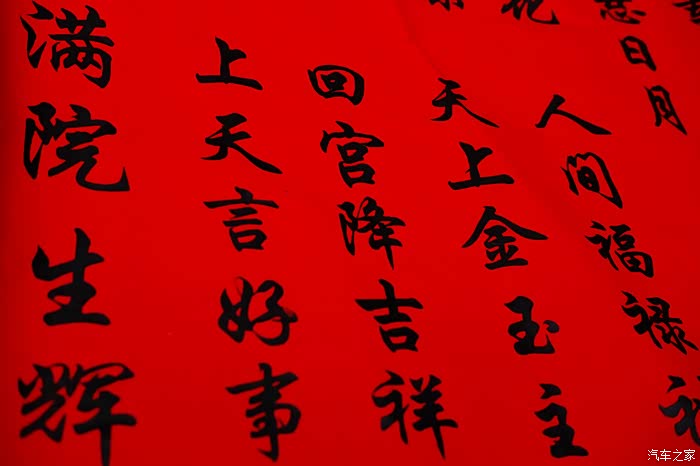 日月
人間福禄
天上金玉主
回宫降吉祥
上天言好事
满院生辉
汽车之家